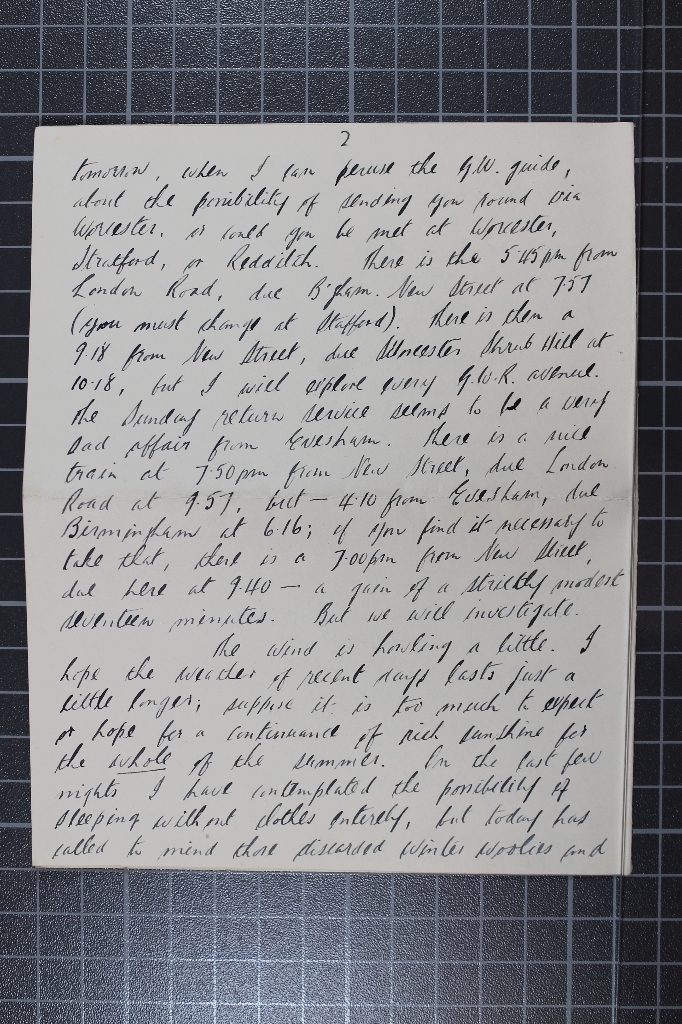 2
tomorrow, when I can peruse the G.W. guide,
about the possibility of sending you round via
Worcester, or could you be met at Worcester,
Stratford, or Redditch. There is the 5·45pm from
London Road, due B'gham. New Street at 7·57
(you must change at Stafford). There is then a
9·18 from New Street, due Worcester Shrub Hill at
10·18, but I will explore every G.W.R. avenue.
The Sunday return service seems to be a very
sad affair from Evesham. There is a nice
train at 7·50pm from New Street, due London
Road at 9.57, but — 4·10 from Evesham, due
Birmingham at 6·16; if you find it necessary to
take that, there is a 7·00pm from New Street,
due here at 9·40 — a gain of a strictly modest
seventeen minutes. But we will investigate.
The wind is howling a little. I
hope the weather of recent days lasts just a
little longer; suppose it is too much to expect
or hope for a continuance of rich sunshine for
the whole of the summer. On the last few
nights I have contemplated the possibility of
sleeping without clothes entirely, but today has
called to mind those discarded winter woolies and